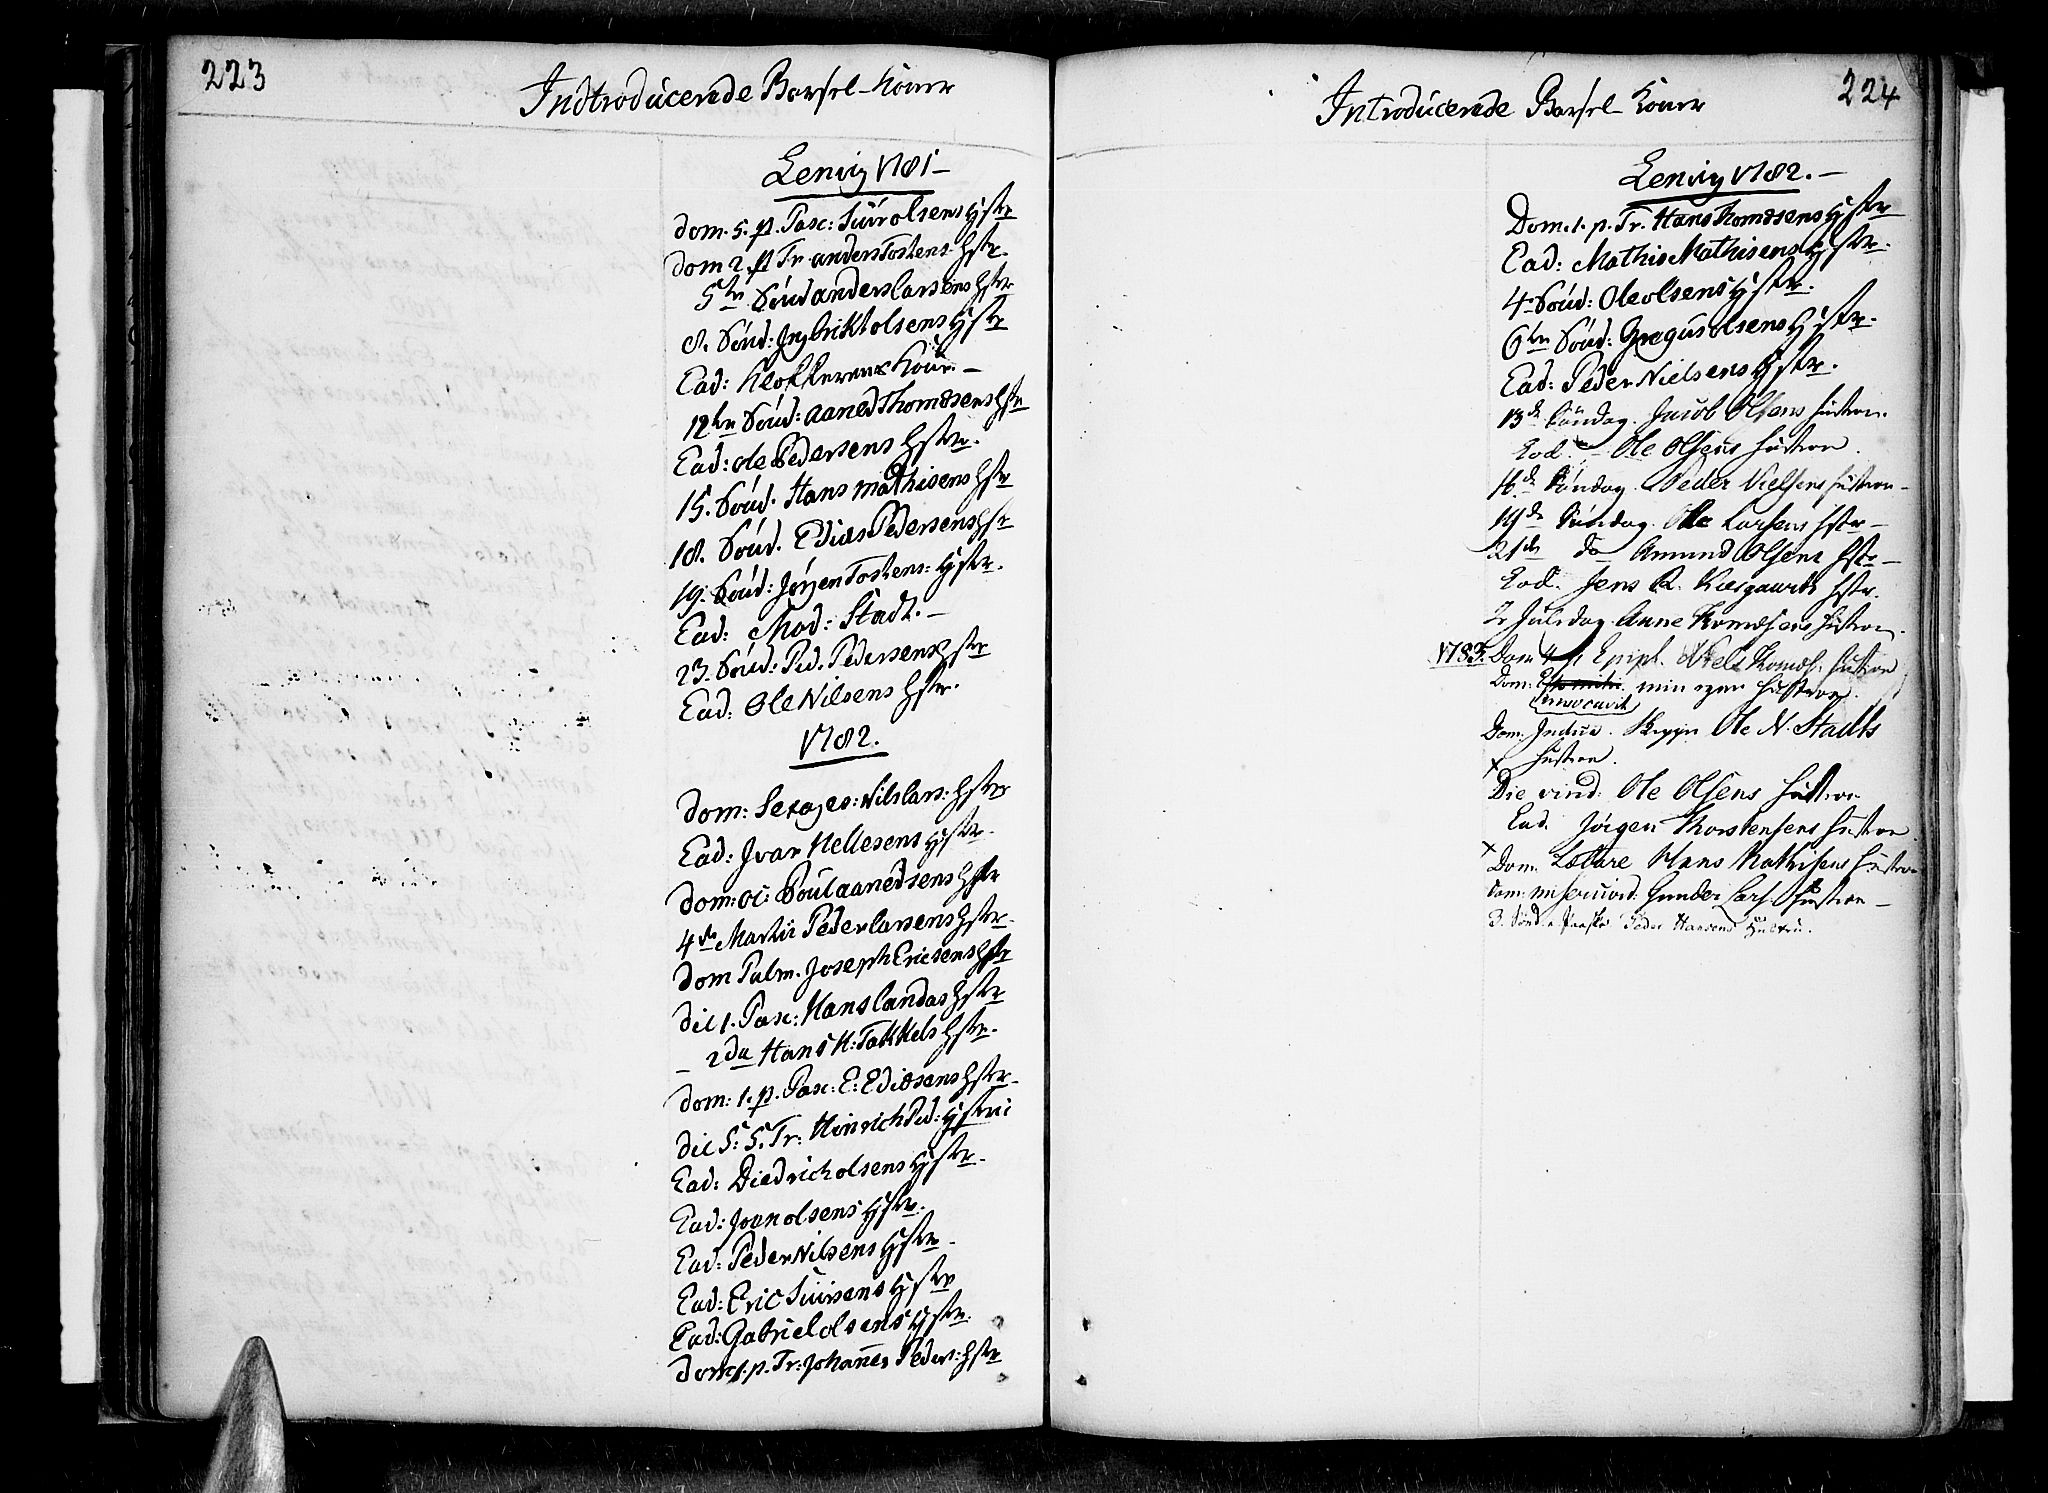 223
Indtroducerede Barsel-Koner
Lenvig 1781 –
dom. 5. p. Pasc: Siúr olsens Hstr
dom 2. p Tr. anders Tostens: Hstr.
5te Sönd anders larsens Hstr
8. Sönd: olsens Hstr
Ead: Klokkerens Kone –
12te Sönd: aaned Thomæsens Hstr
Ead: ole Pedersens Hstr.
15. Sönd. Hans mathisens Hstr
18. Sönd. Edias Pedersens Hstr
19. Sönd: Jörgen Tostens: Hstr.
Ead: Mad: Stadt. –
23. Sönd: Ped. Pedersens Hstr
Ead: Ole Nilsens Hstr.
1782.
dom: Sexages: Nils lars: Hstr
Ead: Ivar Hellesens Hstr.
dom: oc: Poul aanedsens Hstr
4de Martii Peder larsens Hstr.
dom Palm. Joseph Ericsens Hstr
die 1. Pasc: Hans landas Hstr
– 2da Hans H: Takkels Hstr.
dom: 1. p. Pasc: E: Ediæsens Hstr.
die S: S. Tr: Hinrich Ped: Hstrue
Ead: Diedrich olsens Hstr.
Ead: Joan olsens Hstr.
Ead: Peder Nilsens Hstr.
Ead: Eric Siúrsens Hstr
Ead: Gabriel olsens Hstr.
dom 1. p. Tr: Johannes Peders: Hstr
224
Introducerede Barsel Koner
Lenvig 1782. –
Dom. 1. p. Tr. Hans Thomæsens Hstr
Ead: Mathis Mathisens Hstr.
4 Sönd: Ole olsens Hstr.
6te Sönd: Gregus olsens Hstr.
Ead: Peder Nielsens Hstr.
13de Söndag. Jacob Olsens Hustroe.
Eod. – Ole Olsens Hustroe.
16de Söndag. Peder Nielsens Hustroe –
19de Söndag. Ole Larsens Hstr –
21de do Amund Olsens Hstr –
Eod. Jens R. Kiergaards Hstr.
2 Juledag Anne Thomæsens Hustroe.
1783. Dom 4 p Epiph. Niels Thomæs: Hustroe
Dom: Esto mihi min egen Hustroe.
invocavit
Dom. Judica. Ole N. Stadts
x Hustroe.
Die vind: Ole Olsens Hustroe
Ead. Jörgen Thorstensens Hustroe
x Dom. Lætare Hans Mathisens Hustroe
Dom: misericord: Gunder Lars: Hustroe –
3. Sönd: e. Paaske Peder Hansens Hustru.